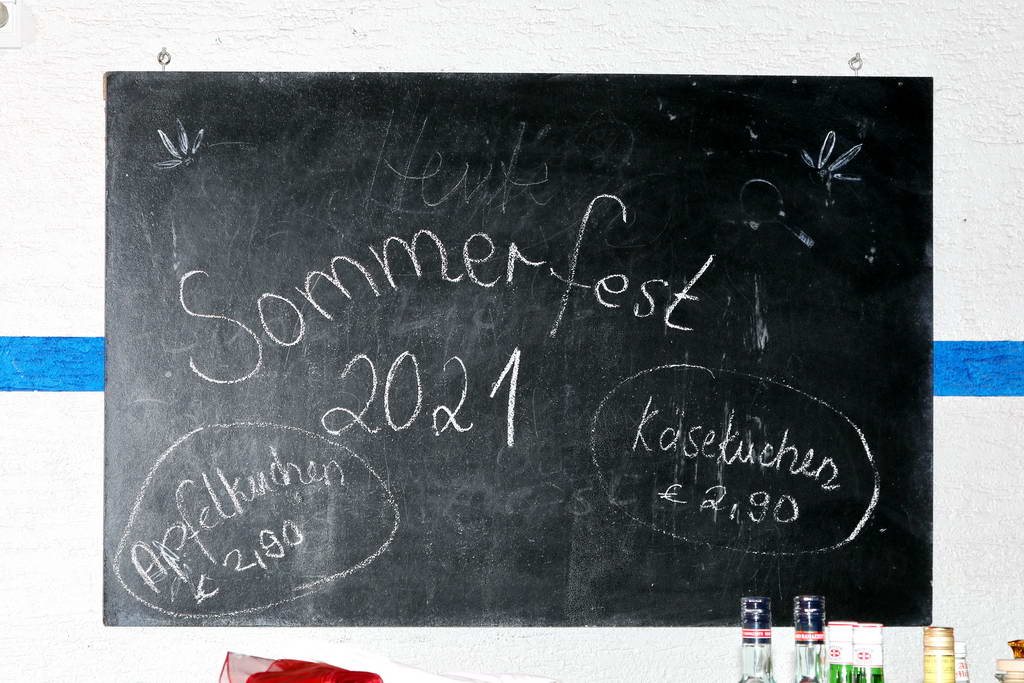 Heute
Sommerfest
2021
Käsekuchen
€ 2,90
Apfelkuchen
€ 2,90